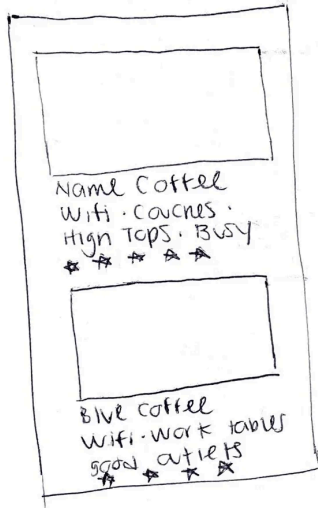 Name Coffee
Wifi · Couches ·
High Tops · Busy
Blue Coffee
Wifi · Work tables
good outlets